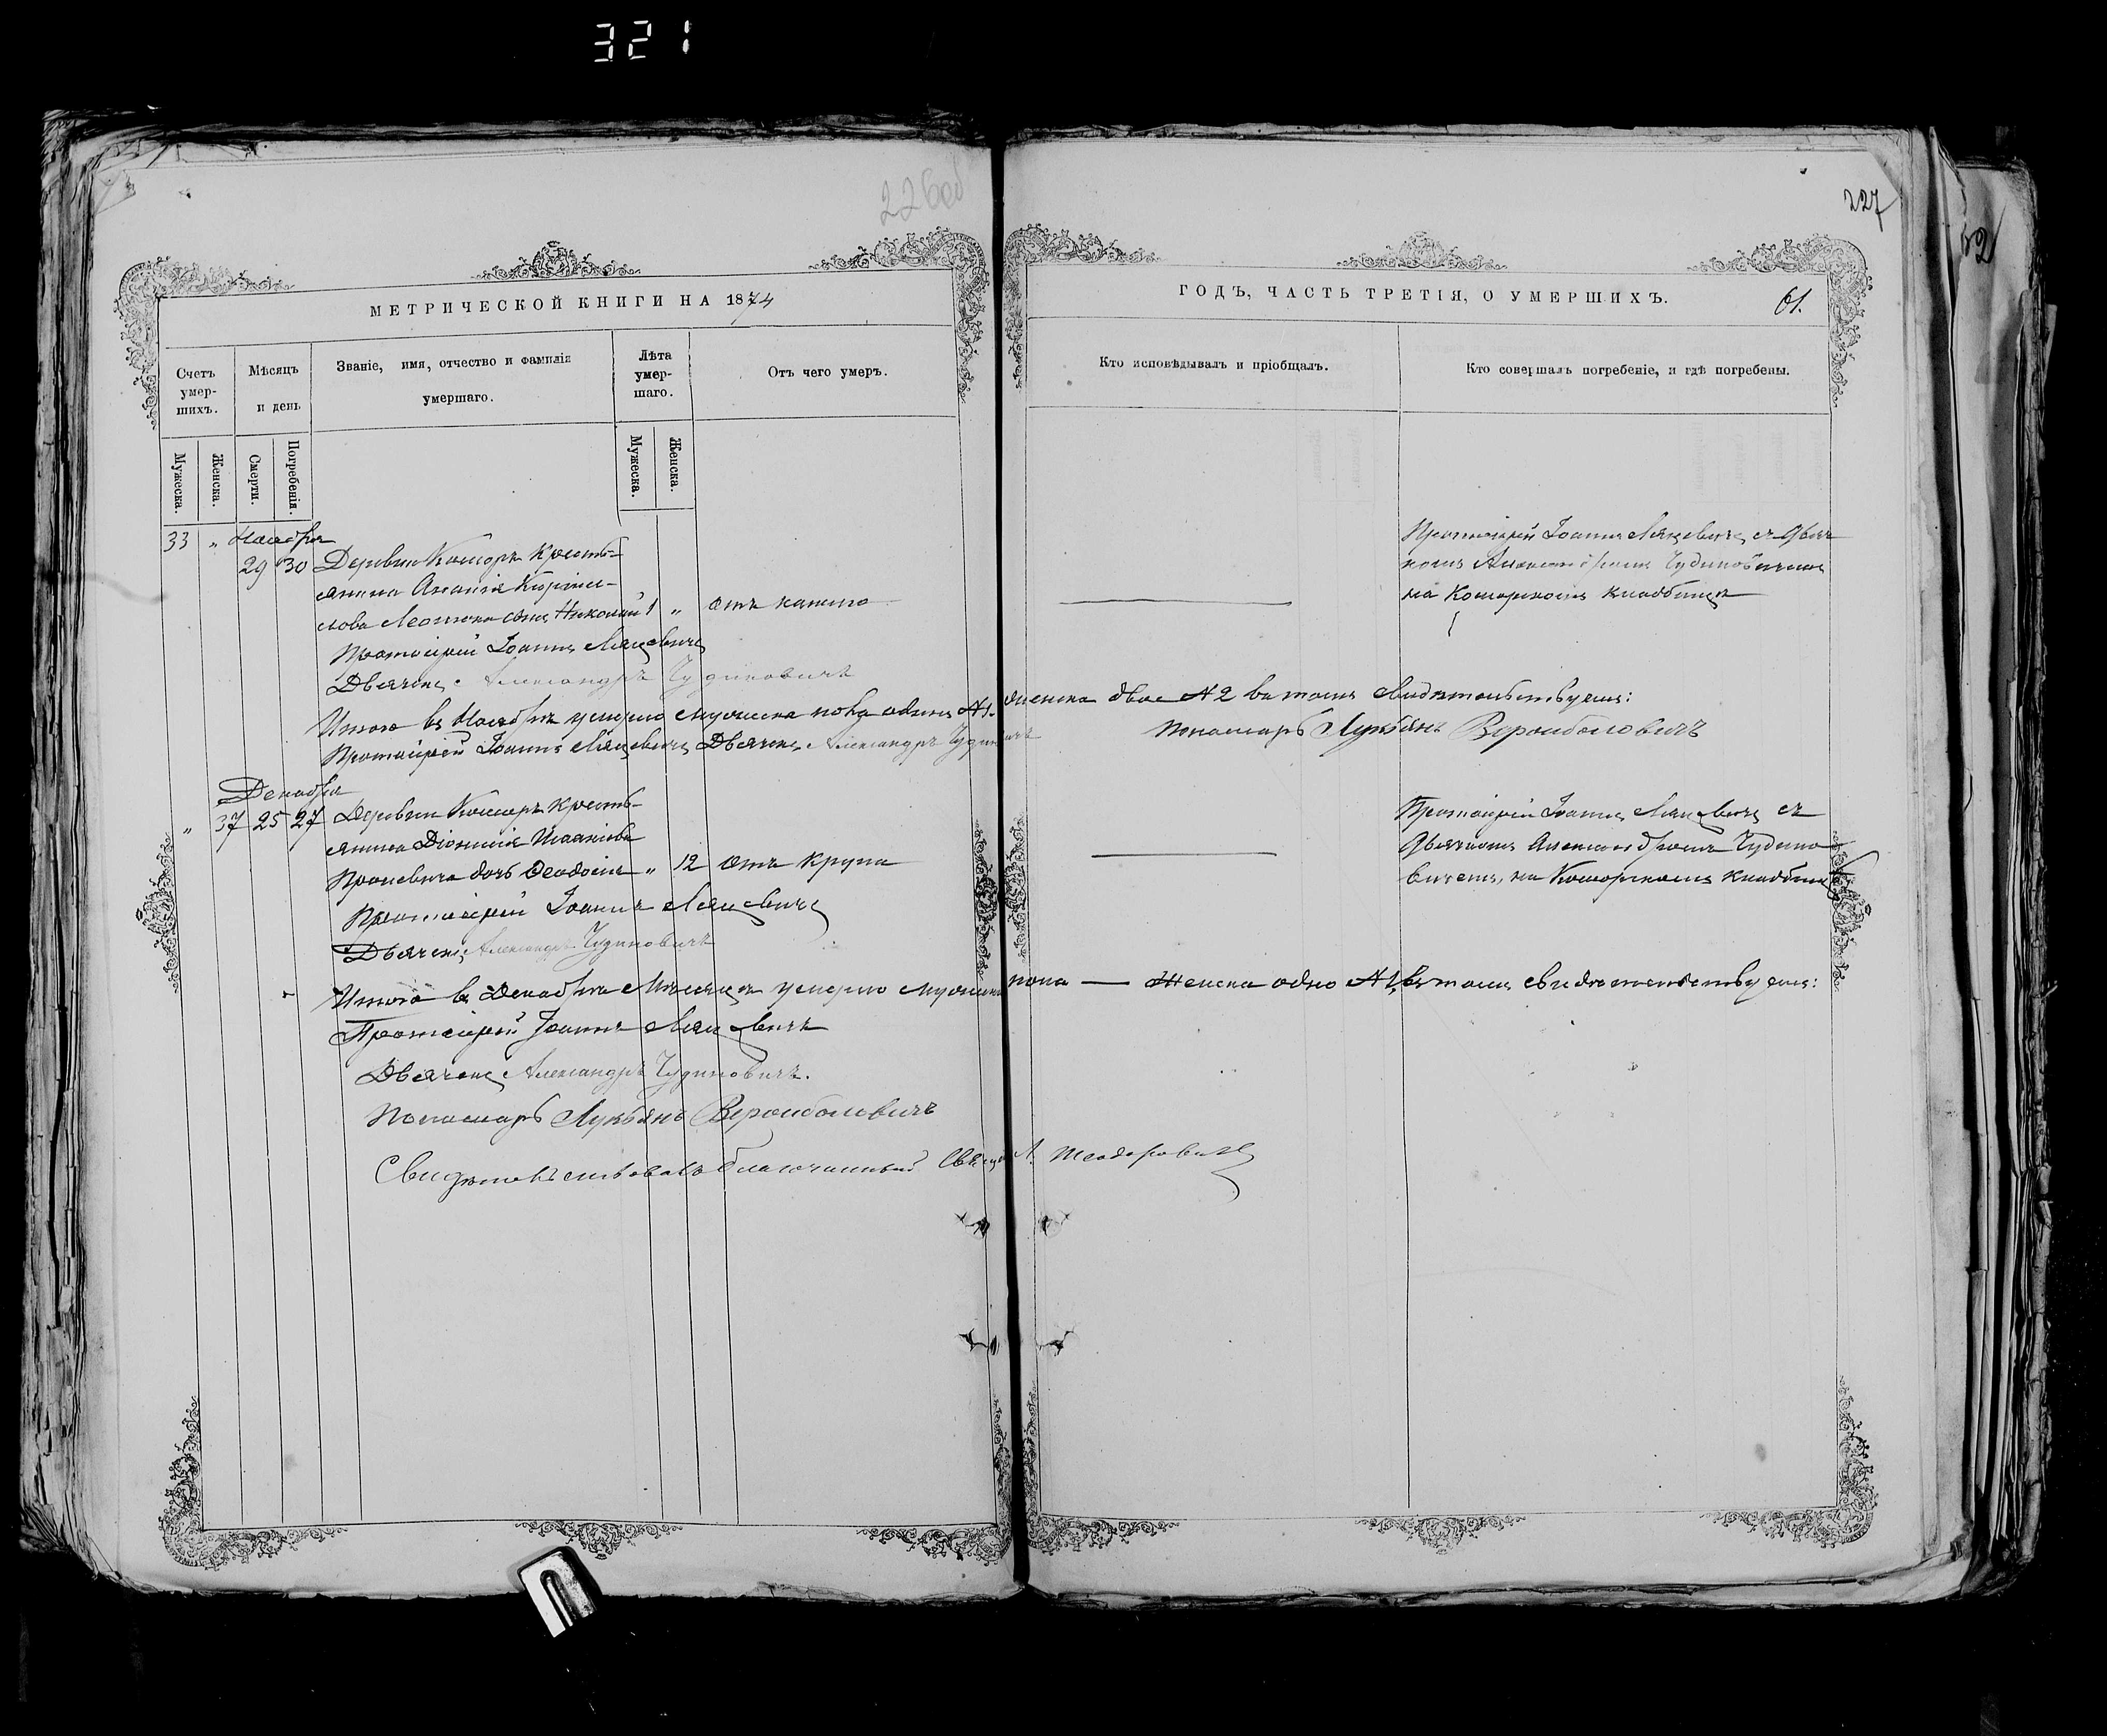 321
226об
227
62
МЕТРИЧЕСКОЙ КНИГИ НА 1874
Счетъ умер-шихъ.
Мѣсяцъ и день
Званіе, имя, отчество и фамилія умершаго.
Лѣта умер-шаго.
Отъ чего умеръ.
Мужеска.
Женска.
Смерти.
Погребенія.
Мужеска.
Женска.
33 „ Ноября
29 30 Деревни Комора кресть-
янина Ананія
сынъ Николай 1 „ отъ кашлю
Протоіерей Іоаннъ
Дьячекъ Александръ Чудиновичъ
Итого въ Ноябрѣ умерло мужеска пола одинъ №1.
Протоіерей Іоаннъ Дьячекъ Александръ Чудиновичъ
Декабря
„ 37 25 27 Деревни Комора кресть-
янина Діонисія
дочь Ѳеодосія „ 12 отъ крупа
Протоіерей Іоаннъ
Дьячекъ Александръ Чудиновичъ
Итого въ Декабрѣ мѣсяцѣ умерло мужеска
Протоіерей Іоаннъ
Дьячекъ Александръ Чудиновичъ.
Пономарь Лукьянъ
Свидѣтельствовалъ благочинный
ГОДЪ, ЧАСТЬ ТРЕТІЯ, О УМЕРШИХЪ.
61.
Кто исповѣдывалъ и пріобщалъ.
Кто совершалъ погребеніе, и гдѣ погребены.
Протоіерей Іоаннъ съ дьяч-
комъ Александромъ Чудиновичемъ
на Коморскомъ кладбищѣ
женска двое №2 въ томъ свидѣтельствуемъ:
Пономарь Лукьянъ
Протоіерей Іоаннъ съ
дьячкомъ Александромъ Чудино-
вичемъ, на Коморскомъ кладбищѣ
пола — женска одно №1, въ томъ свидѣтельствуемъ:
Теодоровичъ